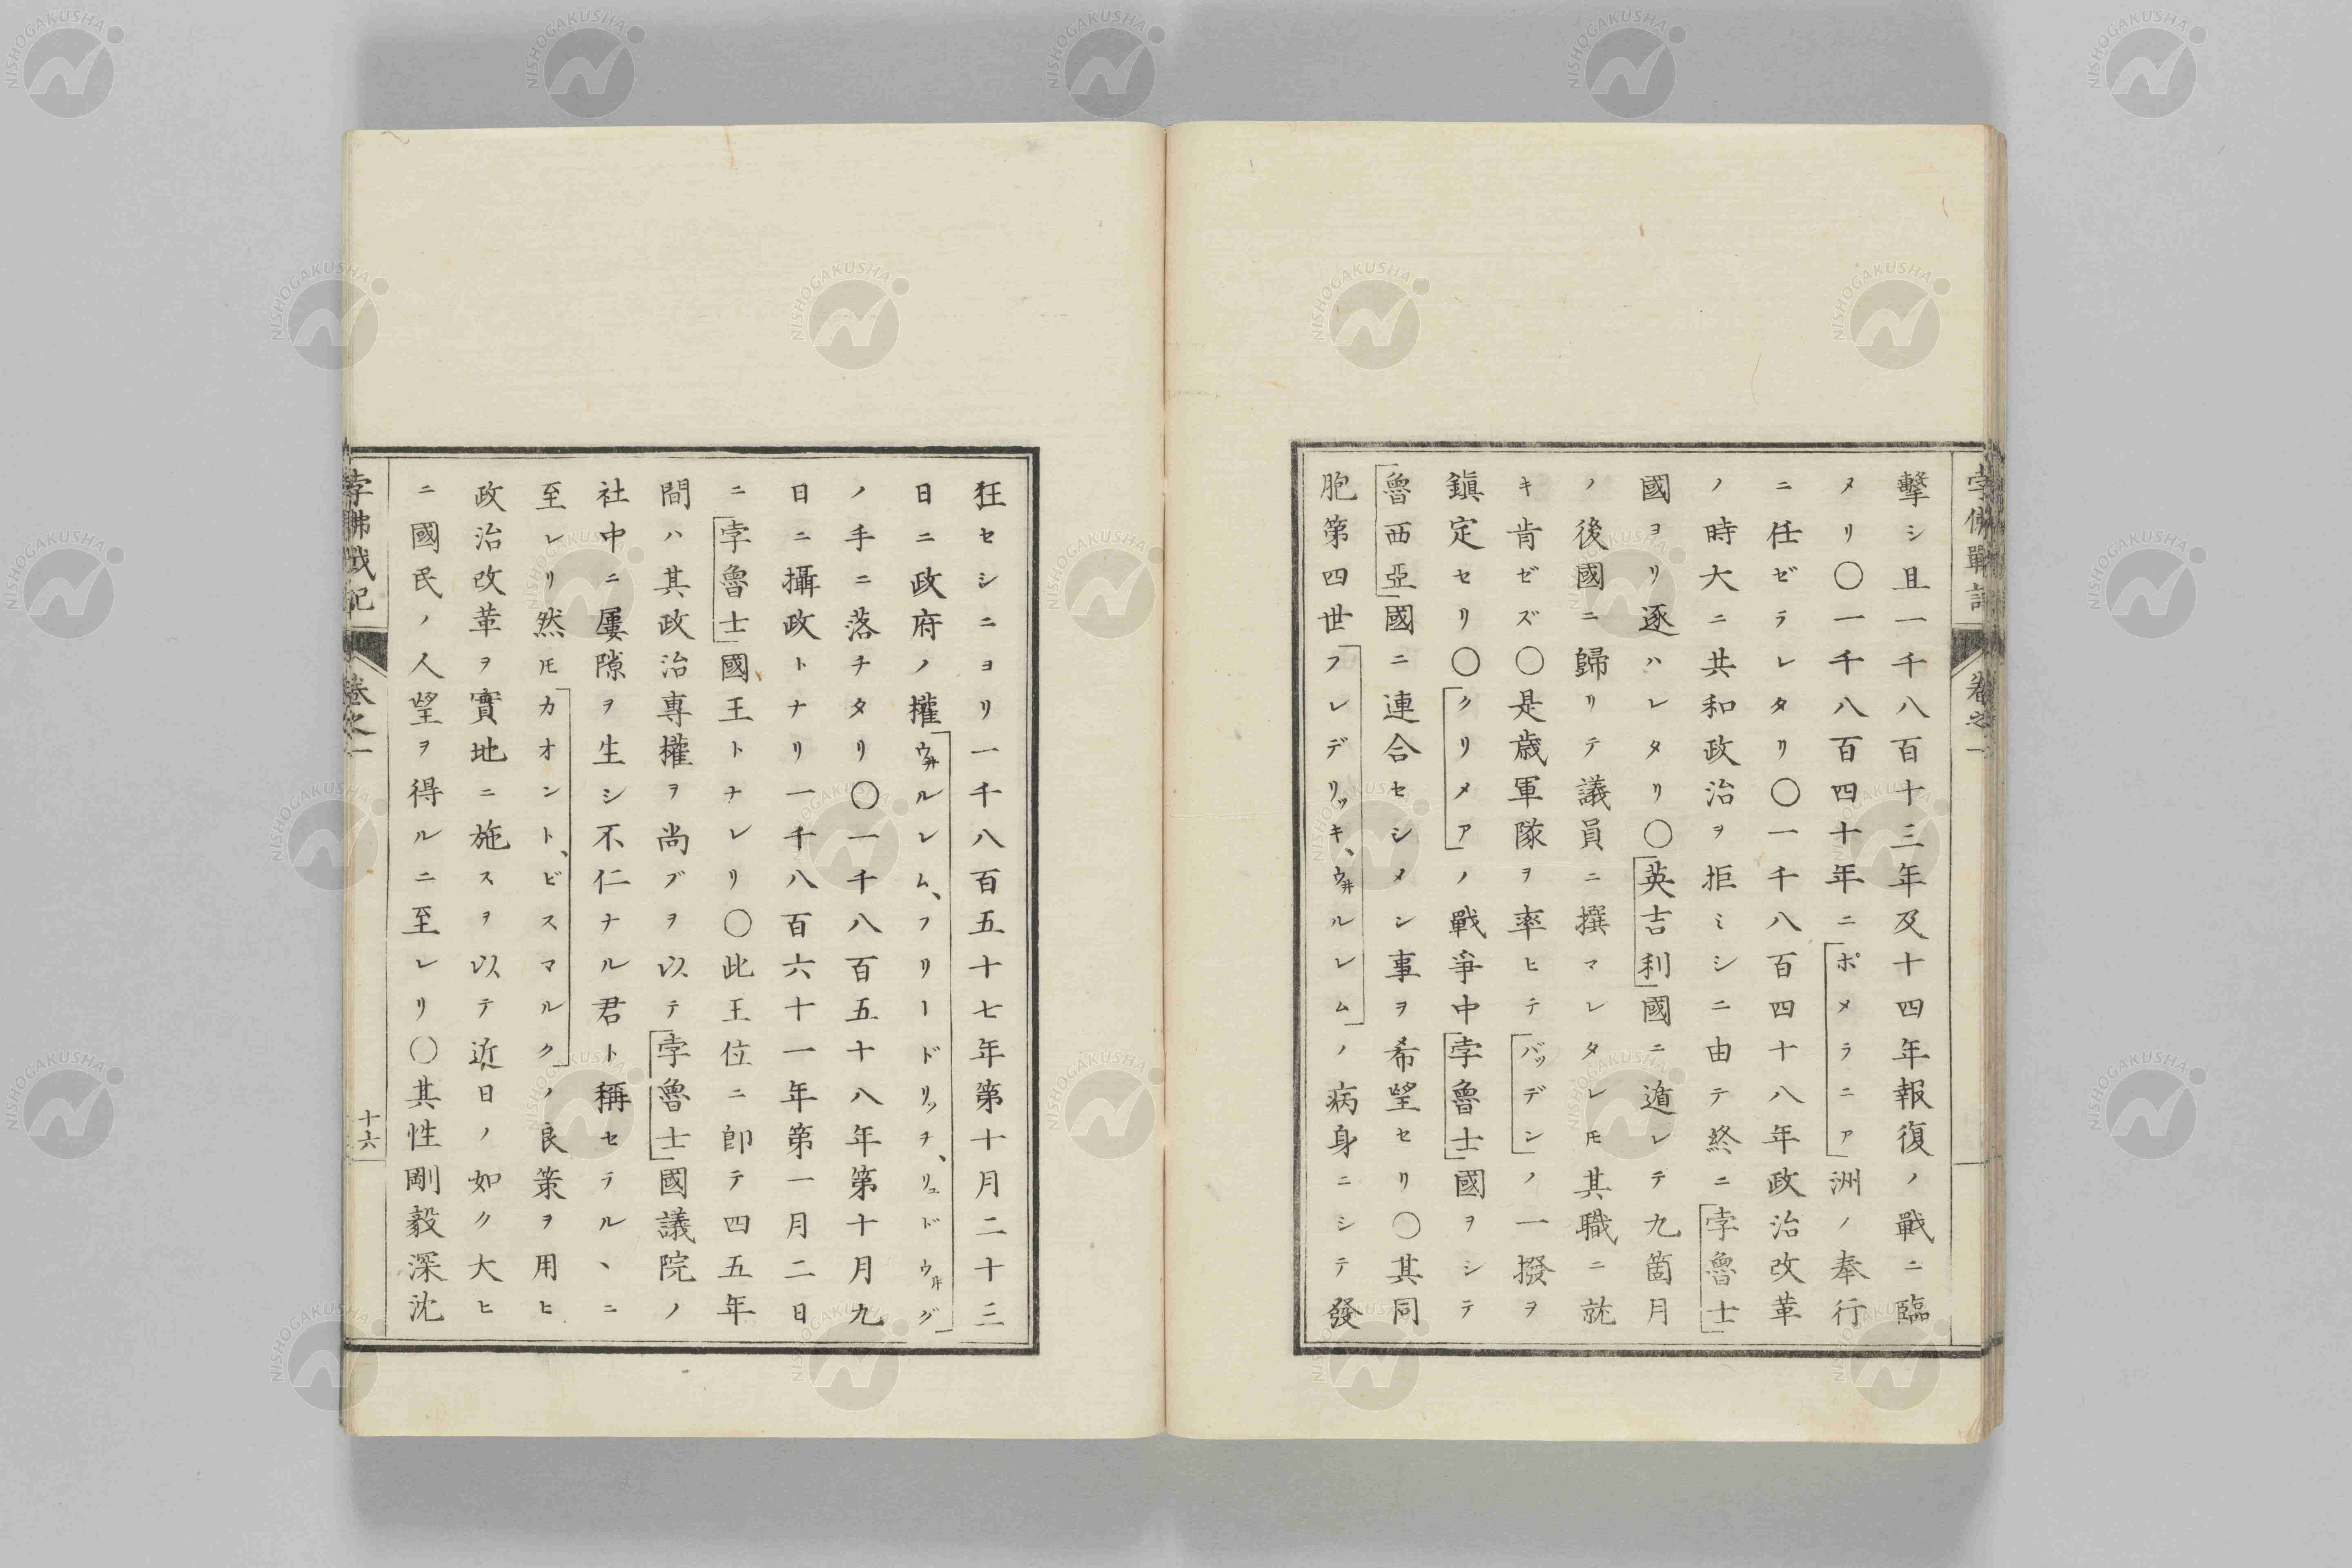 孛佛戰記 卷之一
擊シ且一千八百十三年及十四年報復ノ戰ニ臨
メリ〇一千八百四十年ニポメラニア洲ノ奉行
ニ任ゼラレタリ〇一千八百四十八年政治改革
ノ時大ニ共和政治ヲ拒ミシニ由テ終ニ孛魯士
國ヲリ逐ハレタリ〇英吉利國ニ遁レテ九箇月
ノ後國ニ歸リテ議員ニ撰マレタレ𪜈其職ニ就
キ肯ゼズ〇是歳軍隊ヲ率ヒテバッデンノ一撥ヲ
鎭定セリ〇クリメアノ戰爭中孛魯士國ヲシテ
魯西亞國ニ連合セシメン事ヲ希望セリ〇其同
胞第四世フレデリッキ、ウ井ルレムノ病身ニシテ發
狂セシニヨリ一千八百五十七年第十月二十三
日ニ政府ノ權ウ井ルレム、フリードリッチ、リュドウ井グ
ノ手ニ落チタリ〇一千八百五十八年第十月九
日ニ攝政トナリ一千八百六十一年第一月二日
ニ孛魯士國王トナレリ〇此王位ニ卽テ四五年
間ハ其政治專權ヲ尚ブヲ以テ孛魯士國議院ノ
社中ニ屢隙ヲ生シ不仁ナル君ト稱セラルヽニ
至レリ然𪜈カオント、ビスマルクノ良策ヲ用ヒ
政治改革ヲ實地ニ施スヲ以テ近日ノ如ク大ヒ
ニ國民ノ人望ヲ得ルニ至レリ〇其性剛毅深沈
孛佛戰記 卷之一 十六
NISHOGAKUSHA